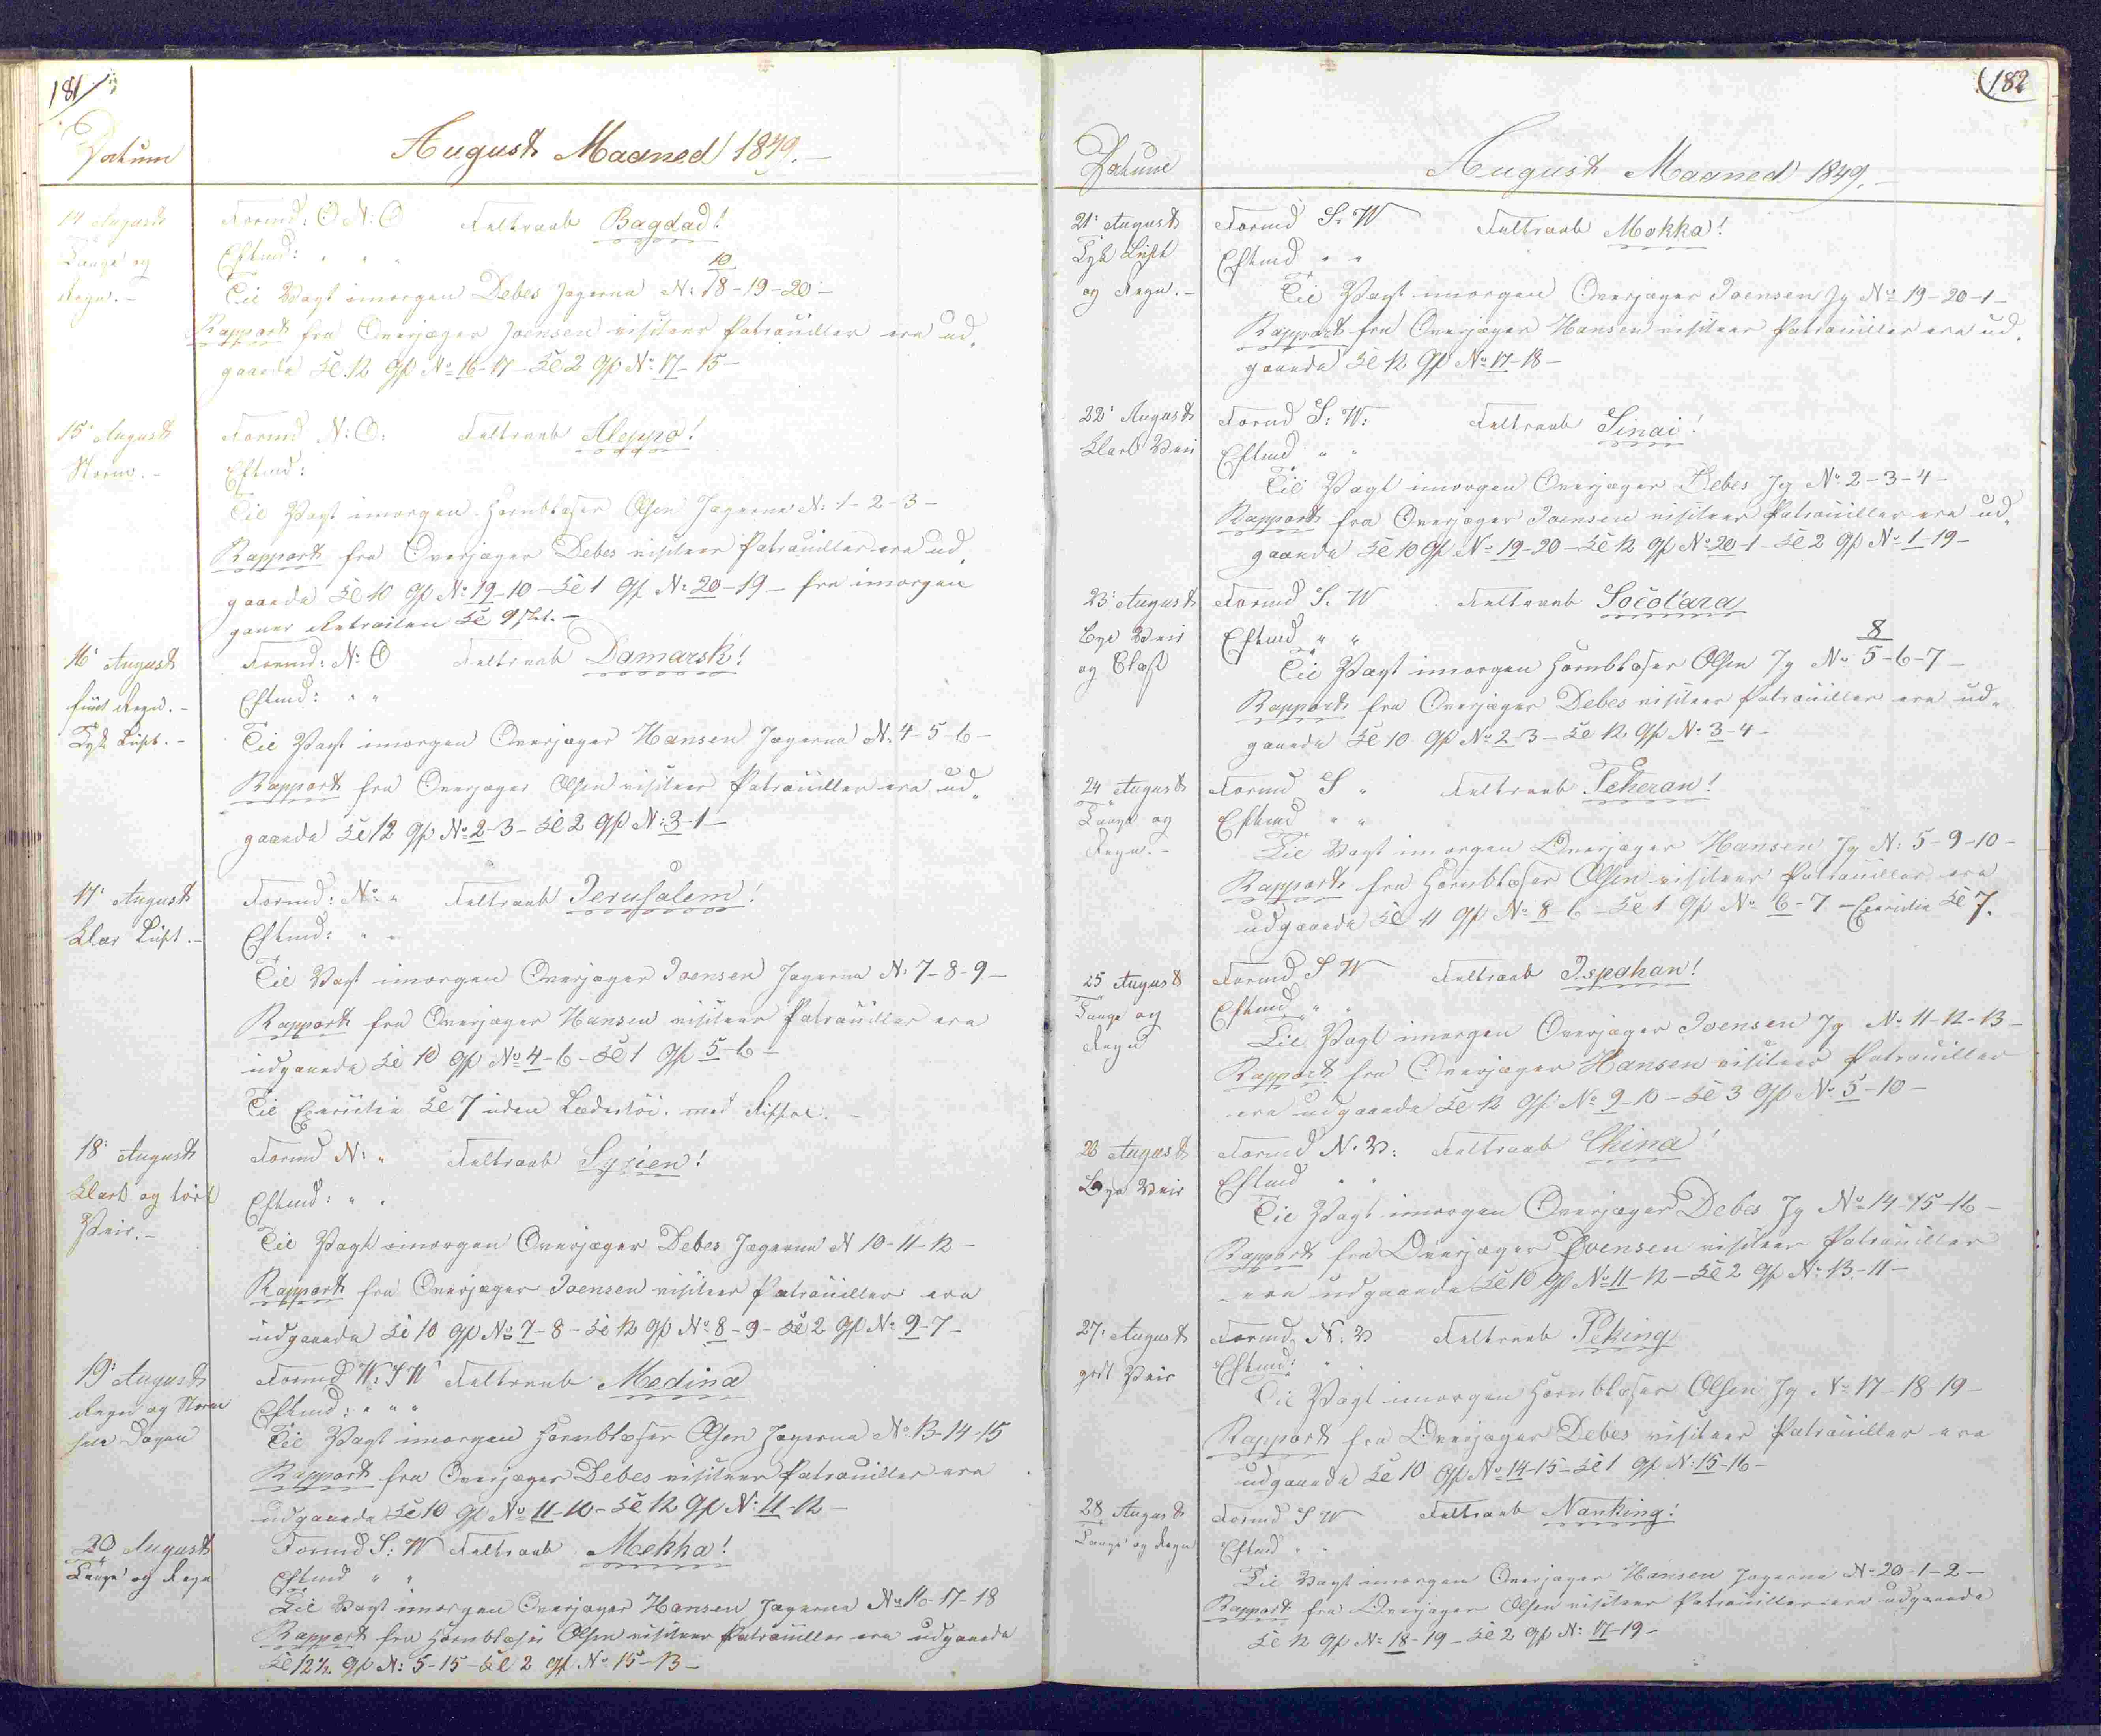 181
Datum
August Maaned 1849.
14 August
Taage og
Regn.
Formd: O N: O Feltraab Bagdad!
Eftmd: " " "
10
Til Vagt imorgen Debes Jagerne N: 18-19-20-
Rapport fra Overjæger Joensen visiteer Patrouiller ere ud„
gaaede Kl 12 Gf No 16-17 - Kl 2 Gf No 17-15-
15' August
Storm.
Formd N: O: Feltraab Aleppo!
Eftmd:
Til Vagt imorgen Hornblæser Olsen Jægerne N: 1-2-3-
Rapport fra Overjæger Debes visiteer Patrouiller ere ud„
gaaede Kl 10 Gf No 19-10 - Kl 1 Gf N: 20-19 - fra imorgen
gaaer Retraiten Kl 9
16' August
Regn.
Tyk Luft.
Formd: N: O Feltraab Damarsk!
Eftmd: " "
Til Vagt imorgen Overjæger Hansen Jægerne N. 4-5-6-
Rapport fra Overjæger Olsen visiteer Patrouiller ere ud„
gaaede Kl 12 Gf No 2-3 - Kl 2 Gf N: 3-1-
17' August
Klar Luft.
Formd: N: " Feltraab Jerusalem!
Eftmd: " "
Til Vagt imorgen Overjæger Joensen Jagerne N: 7-8-9-
Rapport fra Overjæger Hansen visiteer Patrouiller ere
udgaaede Kl 10 Gf No 4-6 - Kl 1 Gf 5-6-
Til Exersitie Kl 7 uden Lædertöi. med Riffel.
18' August
Klart og tört
Veir.
Formd N: " Feltraab Syrien!
Eftmd: " "
Til Vagt imorgen Overjæger Debes Jægerne N 10-11-12-
Rapport fra Overjæger Joensen visiteer Patrouiller ere
udgaaede Kl 10 Gf No 7-8 - Kl 12 Gf No 8-9 - Kl 2 Gf No 9-7-
19' August
Regn og Storm
hele Dagen
Formd W. S W Feltraab Medina
Eftmd: " " "
Til Vagt imorgen Hornblæser Olsen Jagerne No 13-14-15
Rapport fra Overjæger Debes visiteer Patrouiller ere
udgaaede Kl 10 Gf No 11-10 - Kl 12 Gf N: 11-12-
20 August
Taage og Regn
Formd S: W Feltraab Mekha!
Eftmd " "
Til Vagt imorgen Overjæger Hansen Jægerne No 16-17-18
Rapport fra Hornblæser Olsen visiteer Patrouiller ere udgaaede
Kl 12½ Gf N: 5-15 - Kl 2 Gf No 15-13-
182
Datum
August Maaned 1849.
21' August
Tyk Luft
og Regn.
Formd S. W Feltraab Mokka!
Eftmd " "
Til Vagt imorgen Overjæger Joensen Jg No 19-20-1-
Rapport fra Overjæger Hansen visiteer Patrouiller ere ud„
gaaede Kl 12 Gf No 17-18-
22' August
Klart Veir
Formd S: W: Feltraab Sinai!
Eftmd " "
Til Vagt imorgen Overjæger Debes Jg No 2-3-4-
Rapport fra Overjæger Joensen visiteer Patrouiller ere ud„
gaaede Kl 10 Gf No 19-20 - Kl 12 Gf No 20-1 - Kl 2 Gf No 1-19-
23' August
Bye Veir
og Blæst
Formd S. W Feltraab Socotara
Eftmd " "
8
Til Vagt imorgen Hornblæser Olsen Jg No 5-6-7-
Rapport fra Overjæger Debes visiteer Patrouiller ere ud„
gaaede Kl 10 Gf No 2-3 - Kl 12 Gf N: 3-4-
24 August
Taage og
Regn.
Formd S " Feltraab Teheran!
Eftmd " "
Til Vagt imorgen Overjæger Hansen Jg N: 5-9-10-
Rapport fra Hornblæser Olsen visiteer Patrouiller ere
udgaaede Kl 11 Gf No 8-6 - Kl 1 Gf No 6-7 - Exersitie Kl 7.
25 August
Taage og
Regn
Formd S W Feltraab Ispahan!
Eftmd " "
Til Vagt imorgen Overjæger Joensen Jg No 11-12-13-
Rapport fra Overjæger Hansen visiteer Patrouiller
ere udgaaede Kl 12 Gf No 9-10 - Kl 3 Gf No 5-10-
26 August
Bye Veir
Formd N. V: Feltraab China!
Eftmd " "
Til Vagt imorgen Overjæger Debes Jg No 14-15-16-
Rapport fra Overjæger Joensen visiteer Patrouiller
ere udgaaede Kl 10 Gf No 11-12 - Kl 2 Gf No 13-11-
27: August
godt Veir
Formd. N: V Feltraab Peking
Eftmd: " "
Til Vagt imorgen Hornblæser Olsen Jg No 17-18-19-
Rapport fra Overjæger Debes visiteer Patrouiller ere
udgaaede Kl 10 Gf No 14-15 - Kl 1 Gf N: 15-16-
28 August
Taage og Regn
Formd S W Feltraab Nanking!
Eftmd " "
Til Vagt imorgen Overjæger Hansen Jagerne N- 20-1-2-
Rapport fra Overjæger Olsen visiteer Patrouiller ere udgaaede
Kl 12 Gf No 18-19 - Kl 2 Gf N: 17-19-